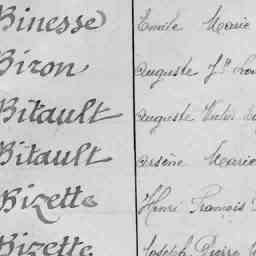 Binesse Emile Marie
Biron Auguste Jh
Bitault Auguste Victor
Bitault Arsène Marie
Bizette Henri François
Bizette Joseph Pierre